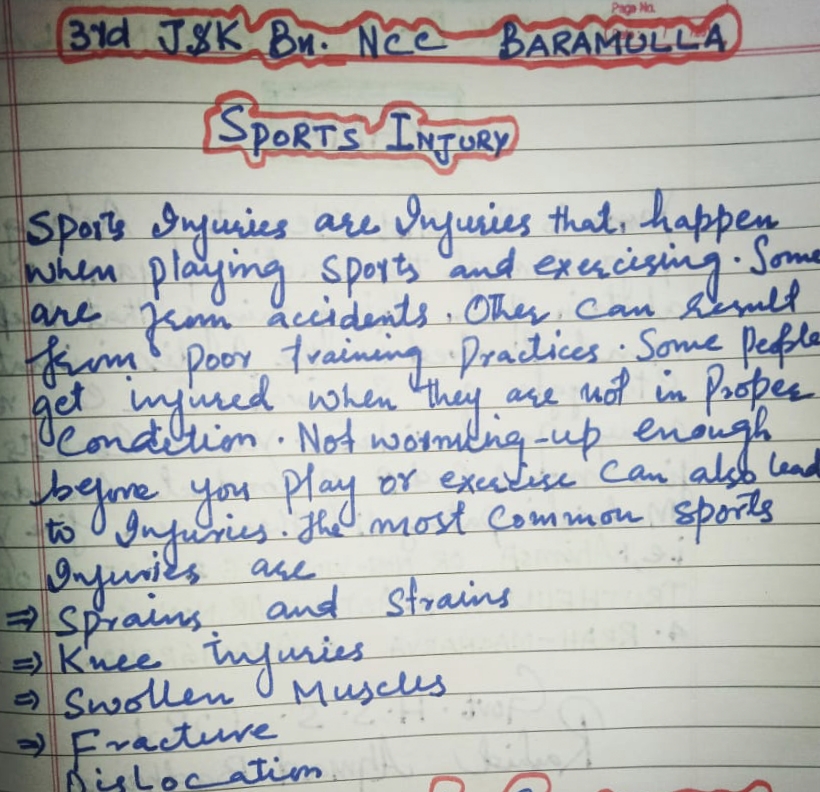 Page No.
3rd J&K Bn. NCC BARAMULLA
SPORTS INJURY
Sports Injuries are Injuries that happen
when playing sports and exercising. Some
are from accidents. Other can result
from poor training practices. Some people
get injured when they are not in proper
Condition. Not worming-up enough
before you play or exercise can also lead
to Injuries. The most common sports
Injuries are
⇒ Sprains and Strains
⇒ Knee injuries
⇒ Swollen Muscles
⇒ Fracture
Dislocation